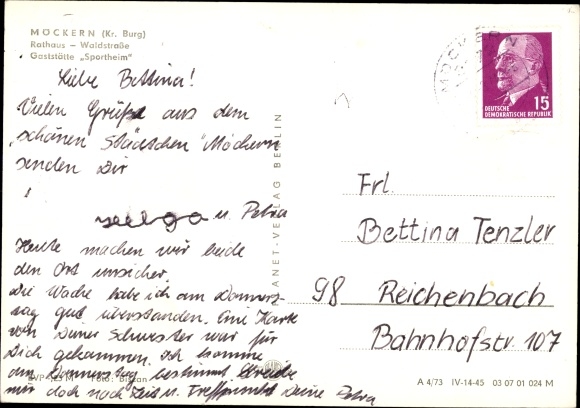 MÖCKERN (Kr. Burg)
Rathaus – Waldstraße
Gaststätte „Sportheim"
Liebe Bettina!
Vielen Grüße aus dem
schönen Städtchen Möckern
senden Dir
u. Petra
Heute machen wir beide
den Ort unsicher.
Die Woche habe ich am Donners-
tag gut überstanden. Eine Karte
von Deiner Schwester war für
Dich gekommen. Ich komme
am Donnerstag bestimmt
mir doch noch Zeit u. Treffpunkt Deine Petra
PLANET-VERLAG BERLIN
MÖCKERN
15
DEUTSCHE
DEMOKRATISCHE REPUBLIK
Frl.
Bettina Tenzler
98 Reichenbach
Bahnhofstr. 107
A 4/73 IV-14-45 03 07 01 024 M